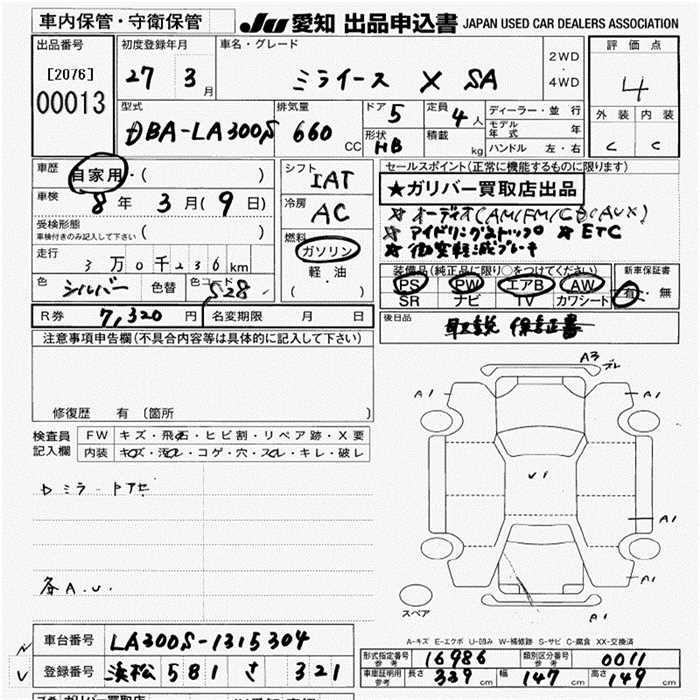 車内保管・守衛保管 JU 愛知 出品申込書 JAPAN USED CAR DEALERS ASSOCIATION
出品番号 初度登録年月 車名・グレード 2WD・4WD 評価点
[2076] 27 3月 ミライース X SA 4
00013 型式 排気量 ドア 5 定員 4人 ディーラー・並行 外装 内装
DBA-LA300S 660 CC 形状 HB 積載 kg モデル年式 年 C C
ハンドル 左・右
車歴 自家用・( ) シフト IAT セールスポイント(正常に機能するものに限ります)
車検 8年 3月(9日) 冷房 AC ★ガリバー買取店出品
受検形態 車検付きのみ記入して下さい ( ) 燃料 ☆オーディオ(AM/FM/CD/AUX)
走行 3万0千236km ガソリン ☆アイドリングストップ ☆ETC
軽・油 ☆衝突軽減ブレーキ
色 シルバー 色替 色コード S28 ( ) 装備品(純正品に限り○をつけてください) 新車保証書
PS PW エアB AW 有・無
SR ナビ TV カワシート
R券 7,320円 名変期限 月 日 後日品 取説 保証書
注意事項申告欄(不具合内容等は具体的に記入して下さい)
修復歴 有 〔箇所 〕
検査員記入欄 FW キズ・飛石・ヒビ割・リペア跡・X要
内装 キズ・汚れ・コゲ・穴・スレ・キレ・破レ
A3
A1 A1
V1
A1
各A.U. A1
A1
スペア
A-キズ E-エクボ U-凹み W-補修跡 S-サビ C-腐食 XX-交換済
車台番号 LA300S-1315304 形式指定番号 参考 16986 類別区分番号 参考 0011
登録番号 浜松 581 さ 321 車庫証明用 参考 長さ 339cm 幅 147cm 高さ 149cm